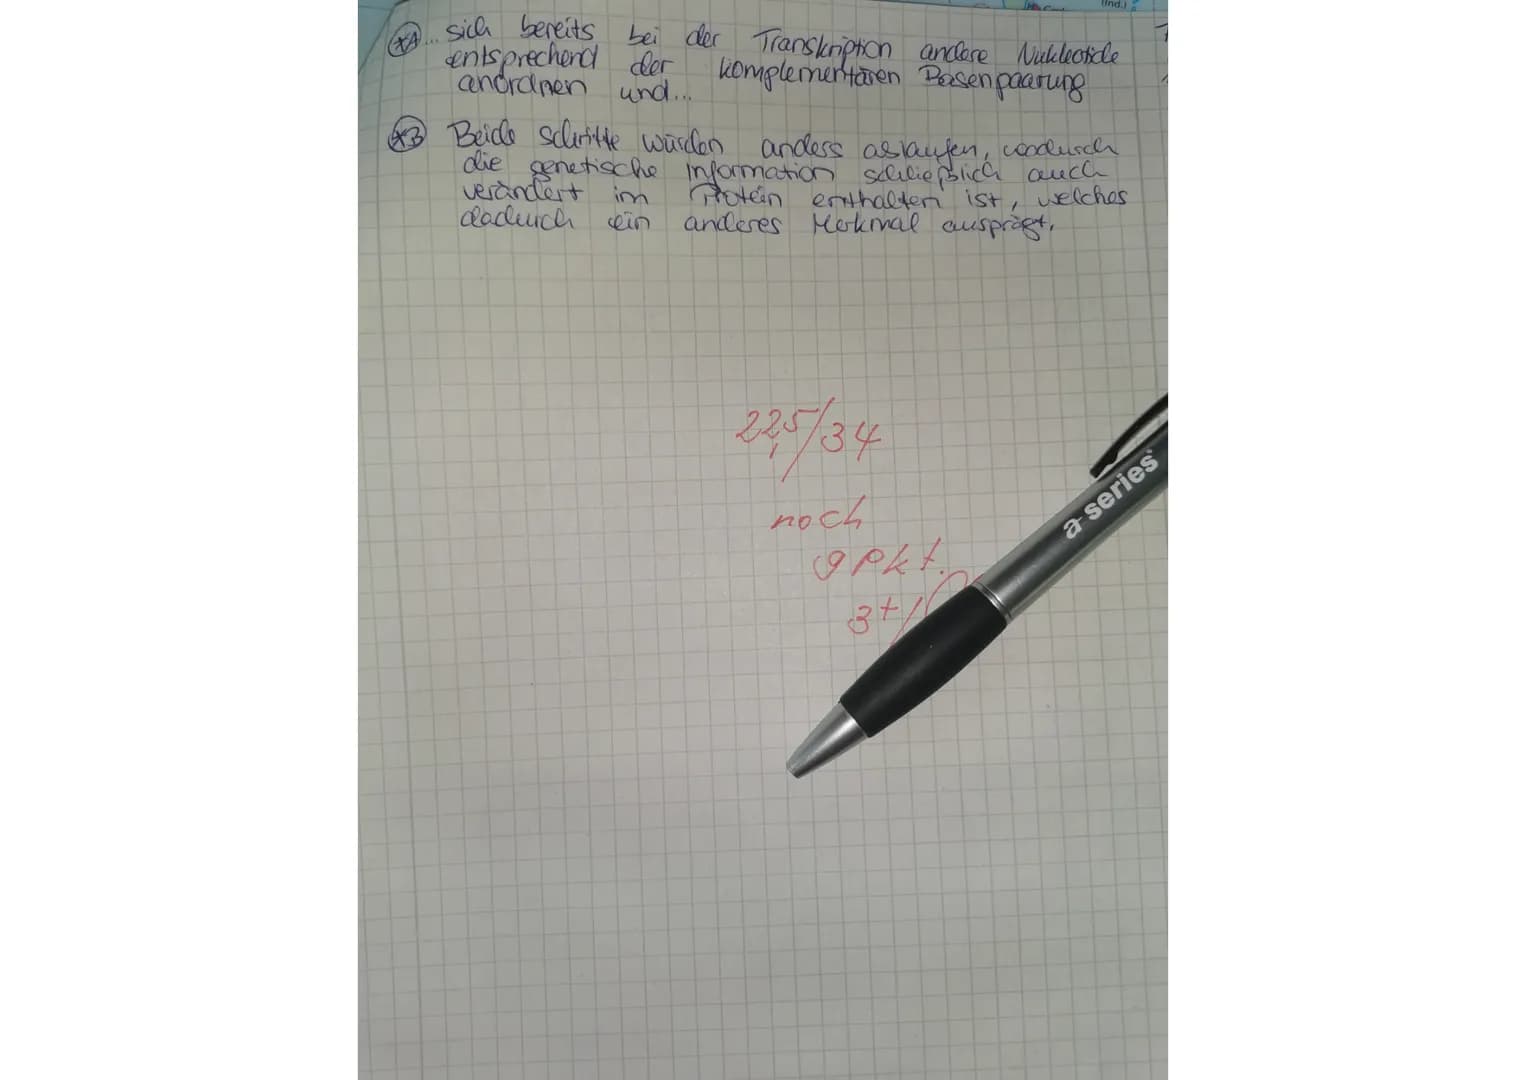 *A ... sich bereits bei der Transkription andere Nukleotide
entsprechend der komplementären Basenpaarung
anordnen und...
*B Beide Schritte würden anders aslaufen, wodurch
die genetische Information schließlich auch
verändert im Protein enthalten ist, welches
daduch ein anderes Merkmal ausprägt.
22,5/34
noch
9 Pkt.
3+/
a-series